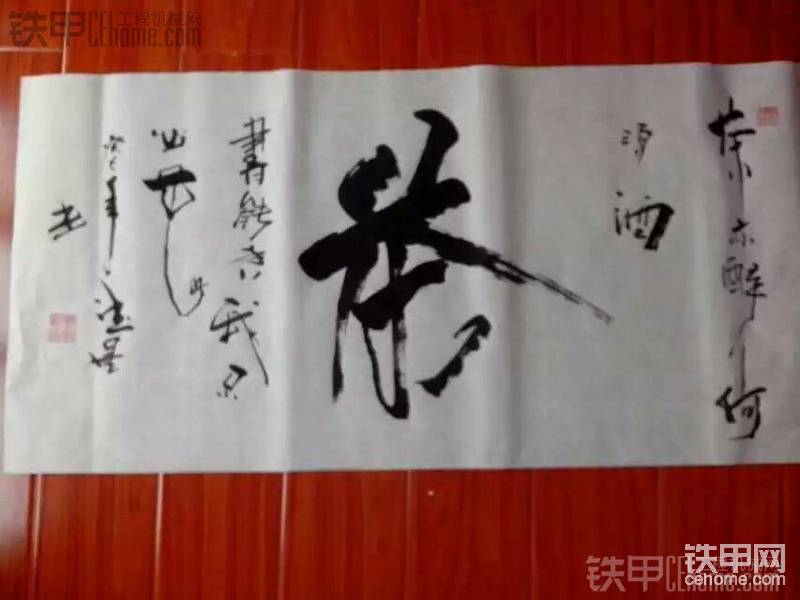 铁甲工程机械网
CEhome.com
茶亦醉人何
须酒
茶
書能香我不
必花
癸巳年
铁甲网
cehome.com